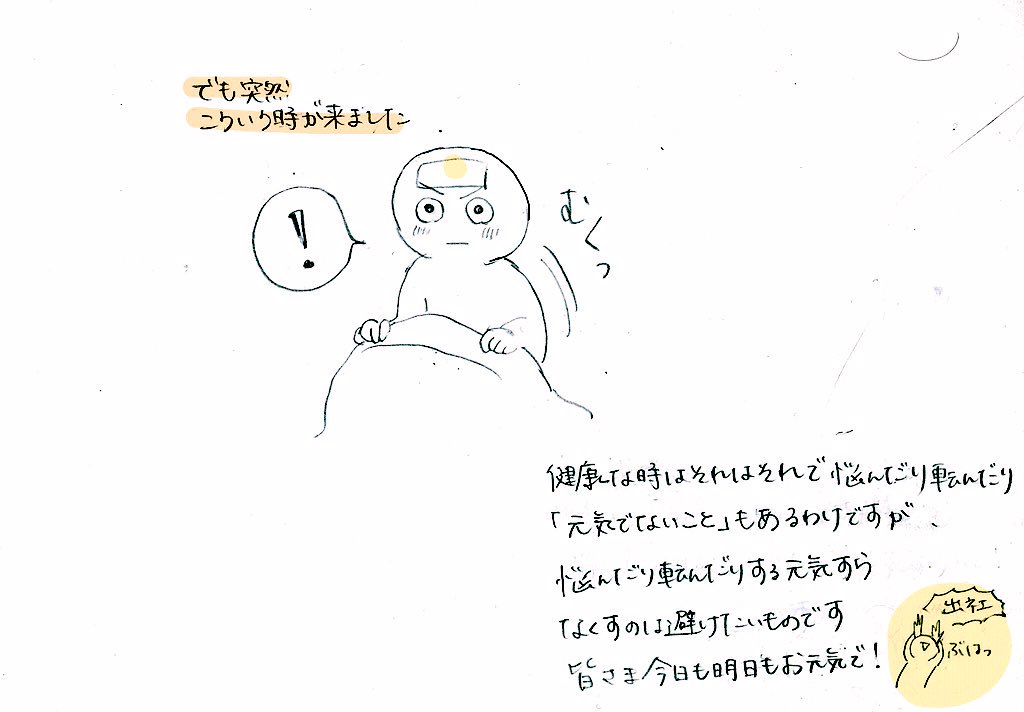 でも突然
こういう時が来ました
!
むくっ
健康な時はそれはそれで悩んだり転んだり
「元気でないこと」もあるわけですが、
悩んだり転んだりする元気すら
なくすのは避けたいものです
皆さま今日も明日もお元気で!
出社
ぶはっ